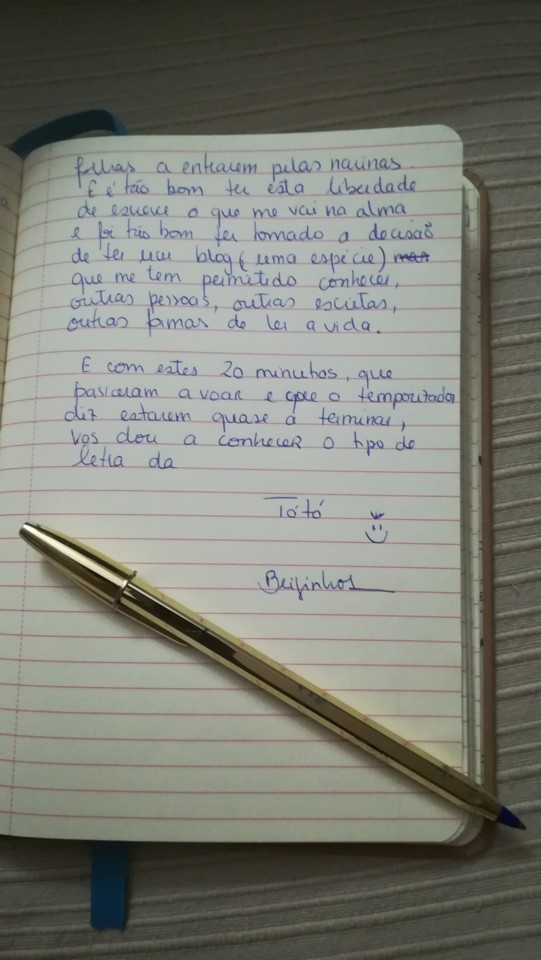 folhas a entrarem pelas narinas.
E é tão bom ter esta liberdade
de escrever o que me vai na alma
e foi tão bom ter tomado a decisão
de ter um blog (uma espécie)
que me tem permitido conhecer,
outras pessoas, outras escritas,
outras formas de ler a vida.
E com estes 20 minutos, que
passaram a voar e que o temporizador
diz estarem quase a terminar,
vos dou a conhecer o tipo de
letra da
Tótó
Beijinhos